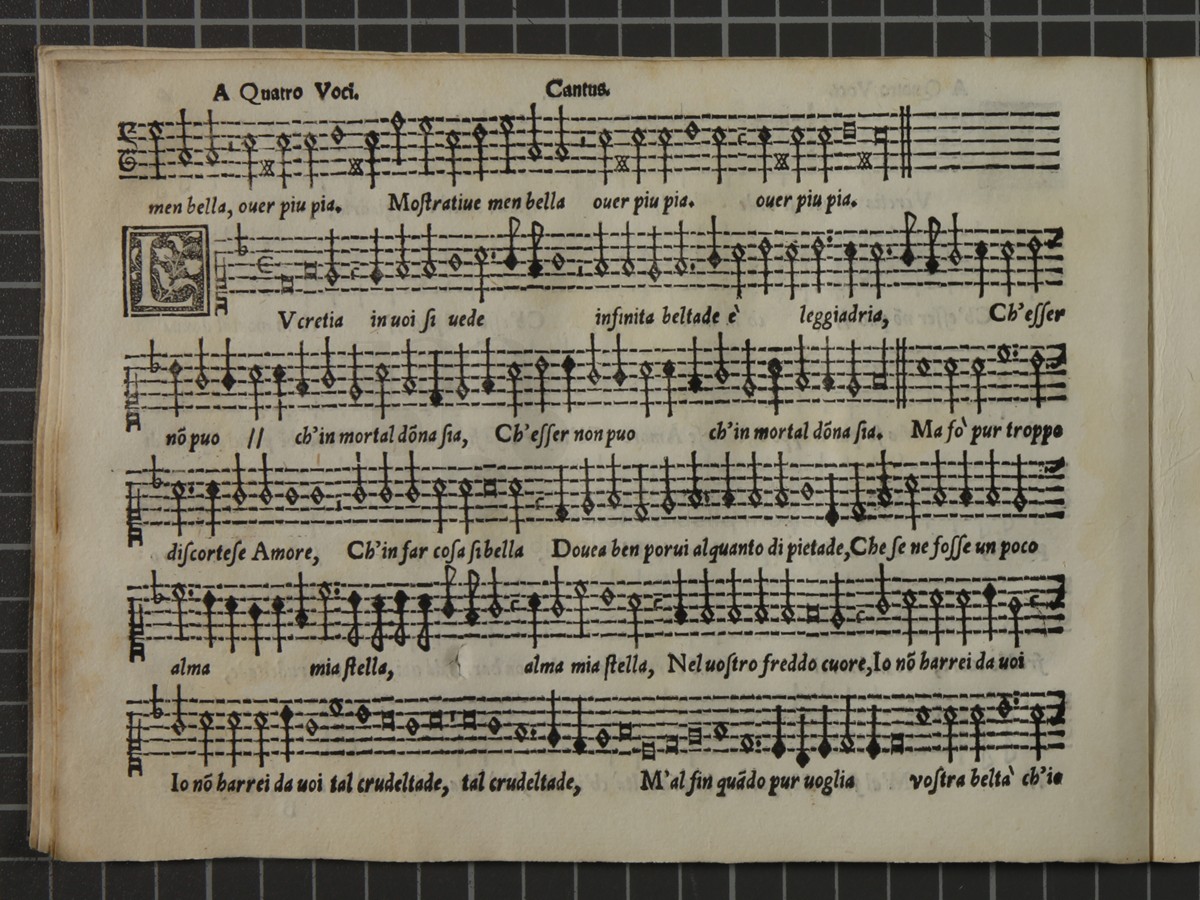 A Quatro Voci. Cantus.
men bella, ouer piu pia. Moſtratiue men bella ouer piu pia. ouer piu pia.
LVcretia in uoi ſi uede infinita beltade è leggiadria, Ch'eſſer
nõ puo // ch'in mortal dõna ſia, Ch'eſſer non puo ch'in mortal dõna ſia. Ma fo` pur troppo
diſcorteſe Amore, Ch'in far coſa ſi bella Douea ben porui alquanto di pietade, Che ſe ne foſſe un poco
alma mia ſtella, alma mia ſtella, Nel uoſtro freddo cuore, Io nõ harrei da uoi
Io nõ harrei da uoi tal crudeltade, tal crudeltade, M'al fin quãdo pur uoglia voſtra belta` ch'io